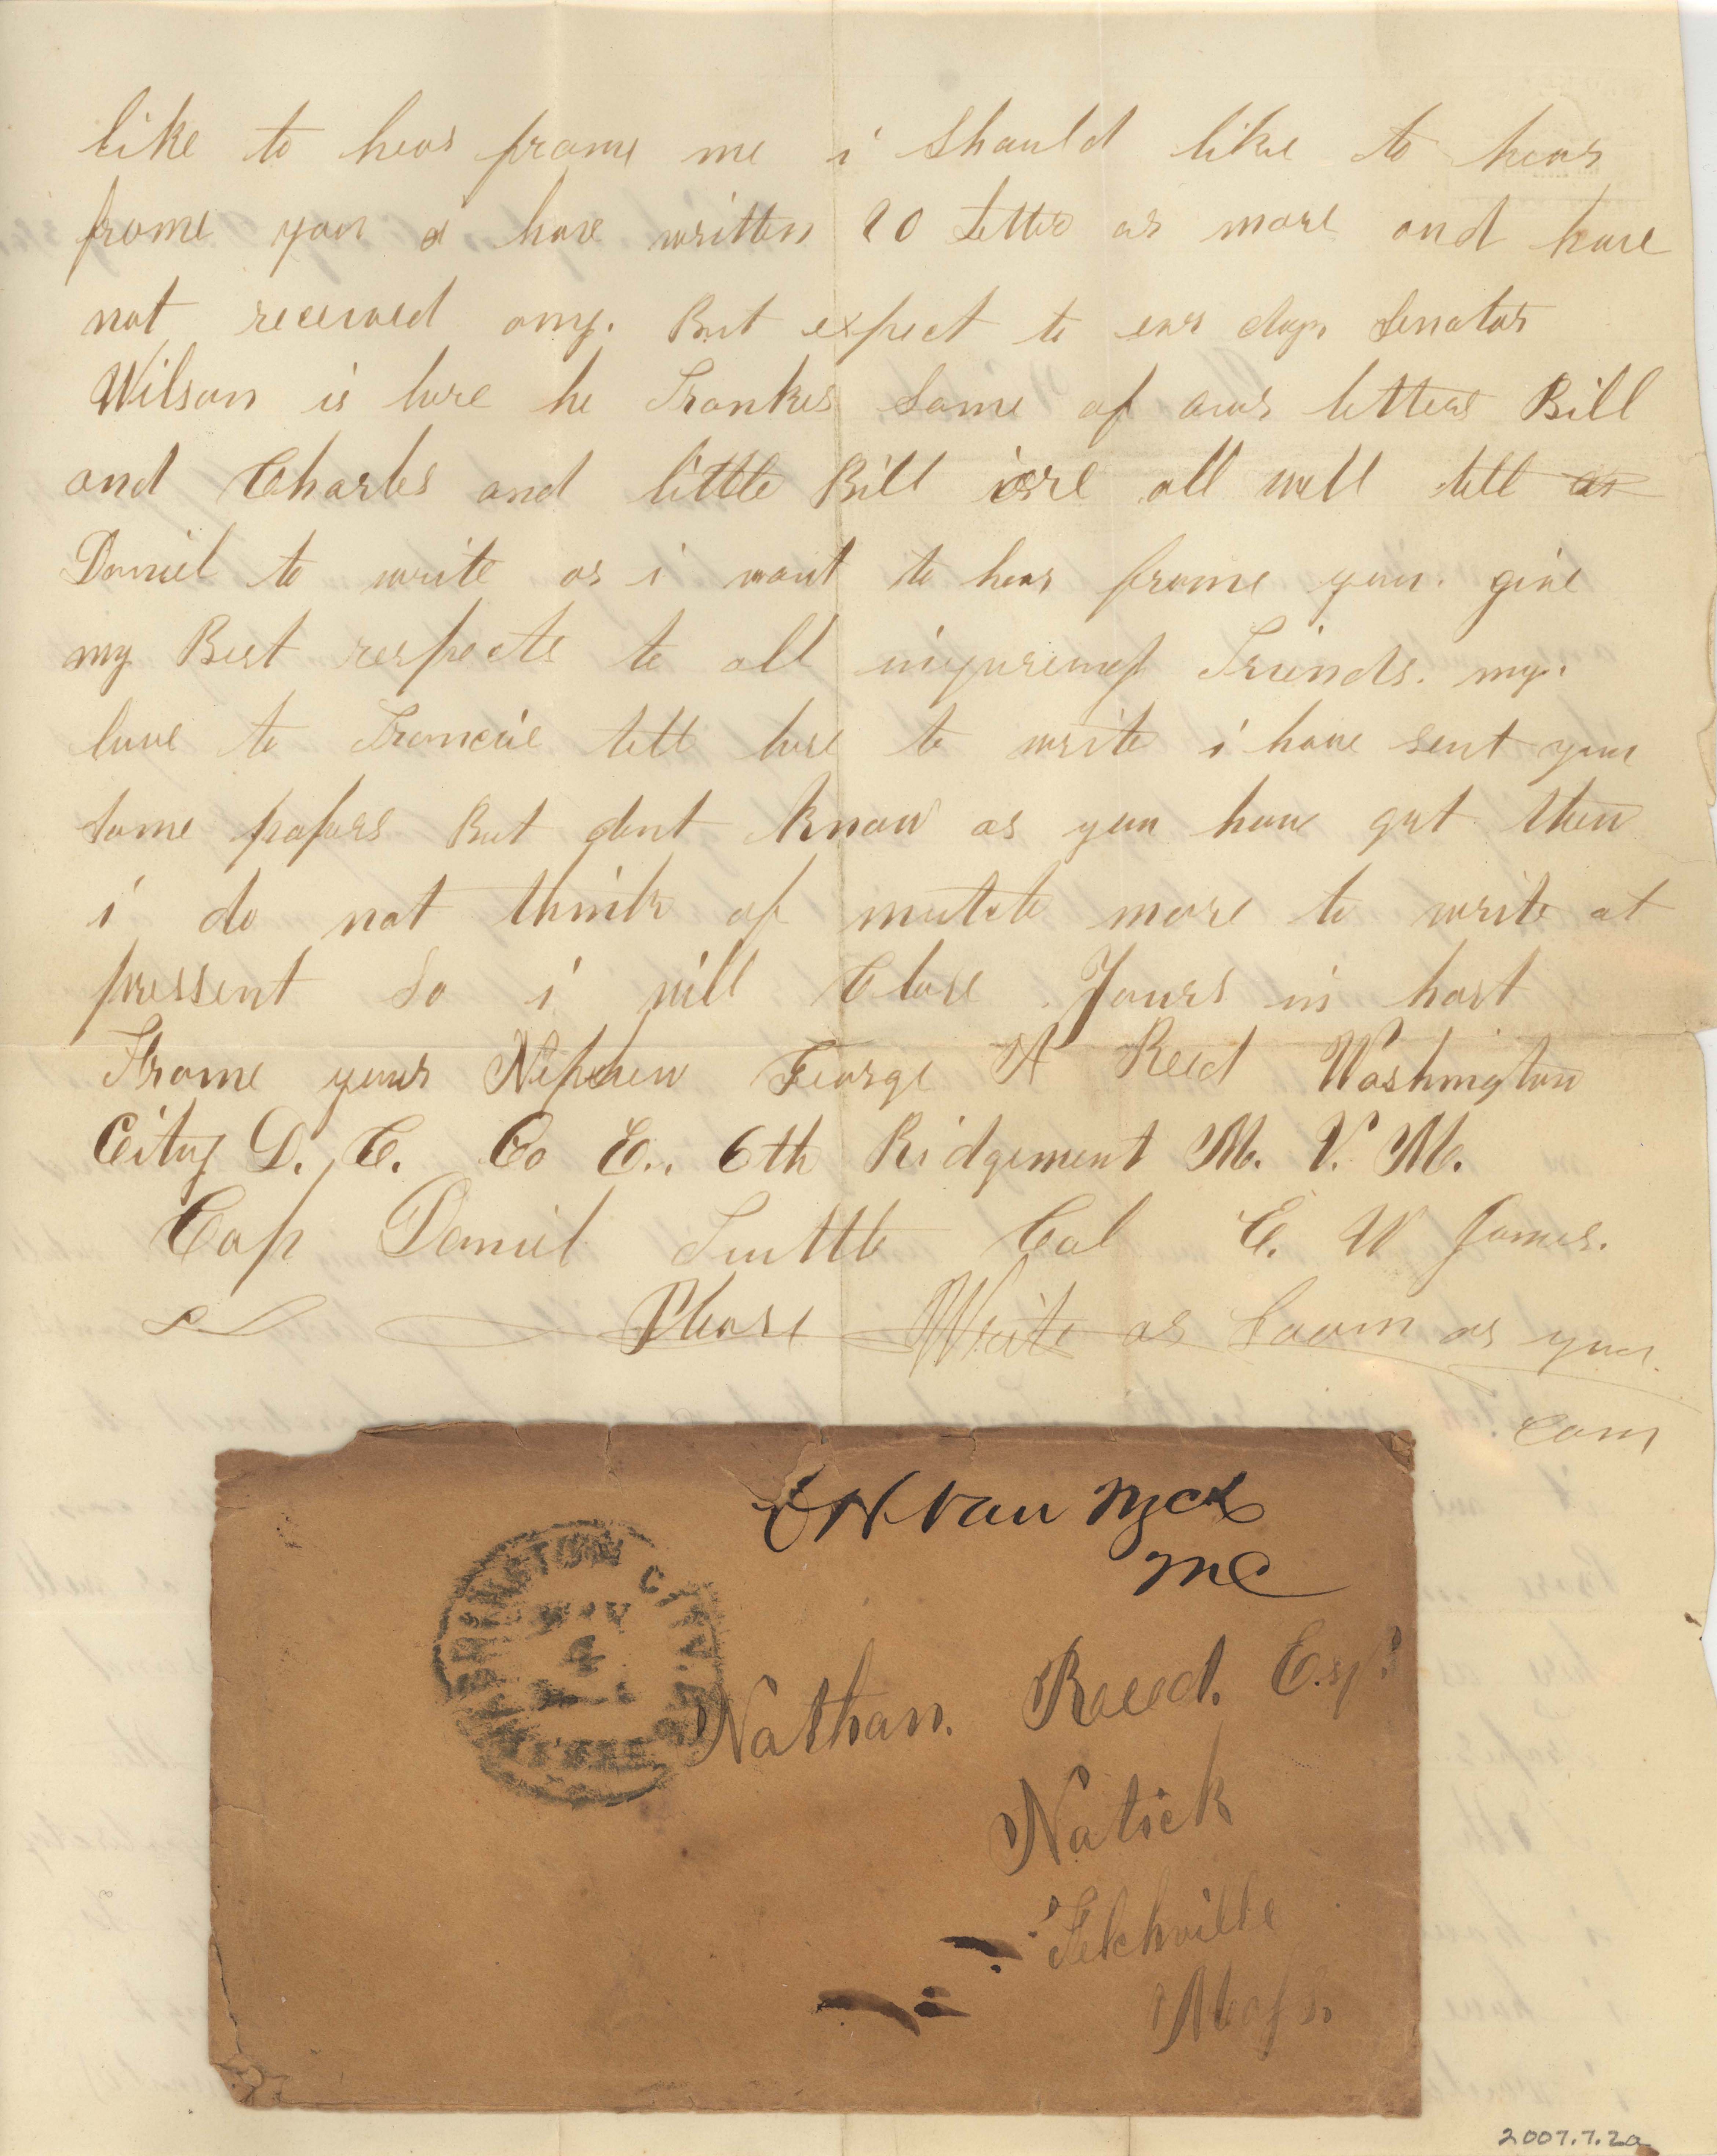 like to hear frome me i should like to hear
frome you i have written 20 Letter or more and have
not received any. But expect to ear days Senator
Wilson is here he Frankes some of our letters Bill
and Charles and little Bill are all well tell
Daniel to write as i want to hear frome you. give
my Best respects to all inquireing Friends. my
love to Francie tell here to write i have sent you
some papers But dont know as you have got then
i do not think of mutch more to write at
pressent So i will Close Yours in hart
Frome your Nephew George A Reed Washington
City D. C. Co E.. 6th Ridgement M. V. M.
Cap Daniel Tuttle Col E. W Jones.
Please Write as Soom as you
cam
C H Van Wyck
MC
WASHINGTON CITY
MAY
4
Nathan. Reed. Esq.
Natick
Felchville
Mass.
2007.7.2a